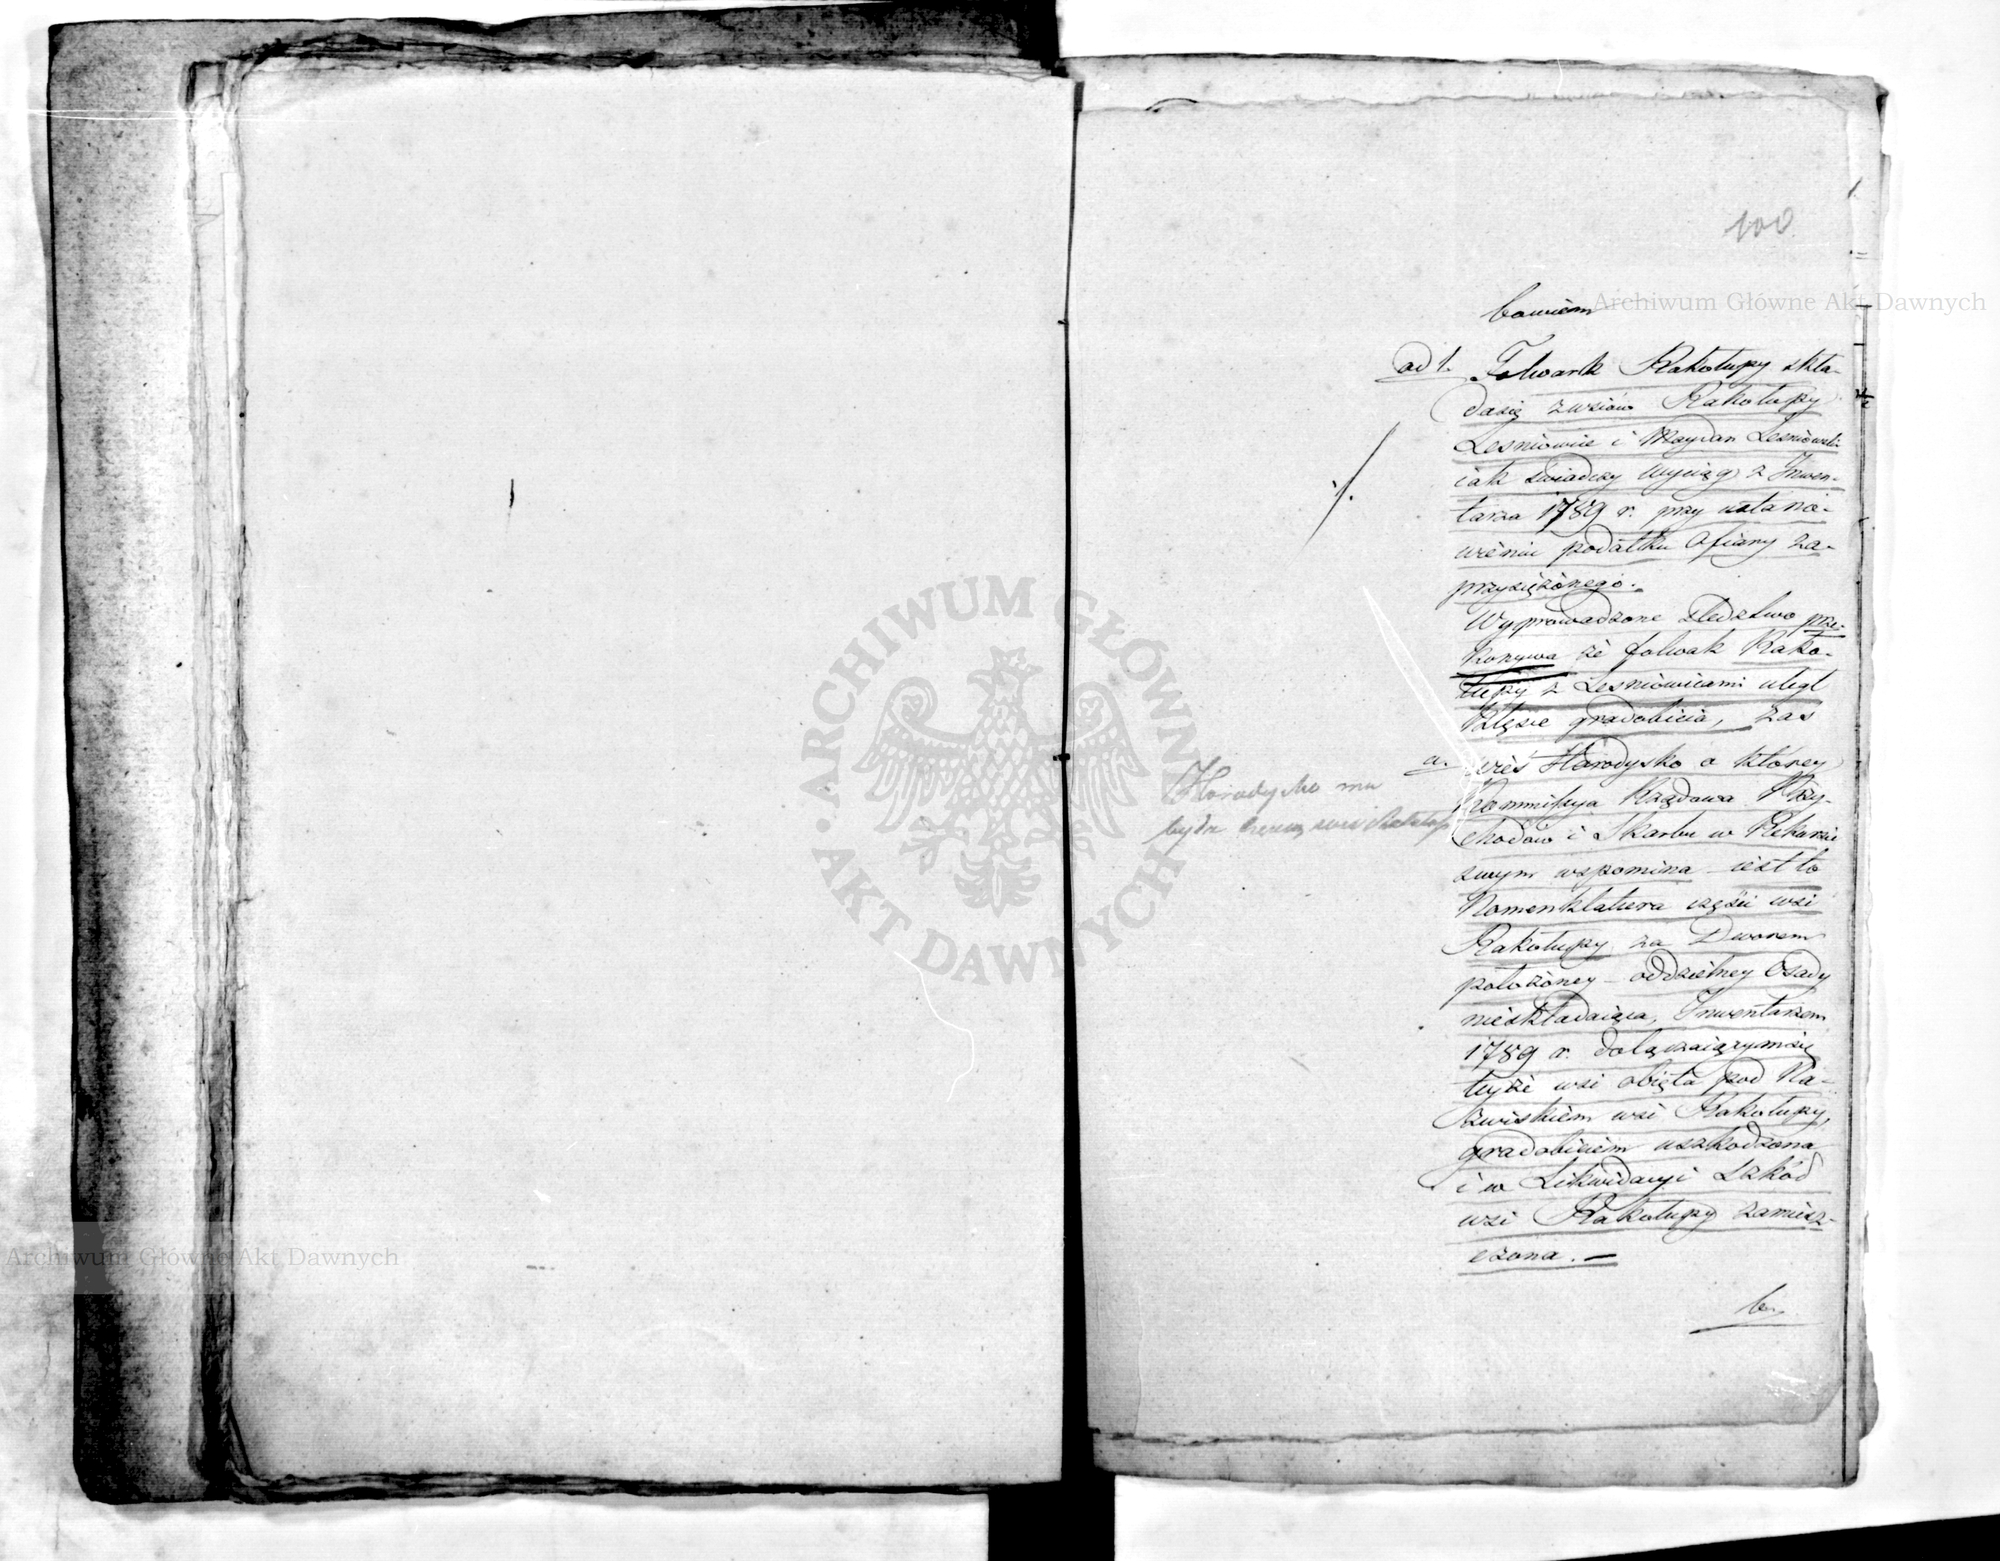 100
bowiem
ad 1. Folwark Rakołupy skła-
dasię zwsiów Rakołupy
Lesniowice i Maydan Lesniowski
iak swiadczy wyciąg z Inwen-
tarza 1789 r. przy ustano-
wieniu podatku Ofiary za-
przysiężonego.
Wyprowadzone sledztwo prze-
konywa że folwak Rako-
łupy z Lesniowicami uległ
klęsce gradobicia, zas
a. wieś Horodysko o ktorey
Kommissya Rządowa Przy-
chodów i Skarbu w Rekursie
swym wspomina iest to
Nomenklatura części wsi
Rakołupy za Dworem
położoney – oddzielney Osady
nieskładaiąca, Inwentarzem
1789 r. dołączaiącymsię
teyże wsi obięta pod Na-
zwiskiem wsi Rakołupy,
gradobiciem uszkodzona
i w Likwidacyi szkód
wsi Rakołupy zamiesz-
czona. —
b.
Horodysko ma
bydź częścią wsi Rakołup
Archiwum Główne Akt Dawnych
Archiwum Główne Akt Dawnych
ARCHIWUM GŁÓWNE
AKT DAWNYCH